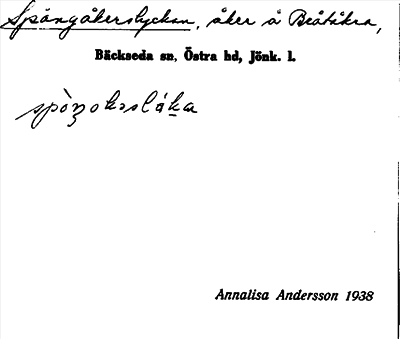 Spångåkerslyckan, åker å Beåtikra,
Bäckseda sn, Östra hd, Jönk. l.
Annalisa Andersson 1938